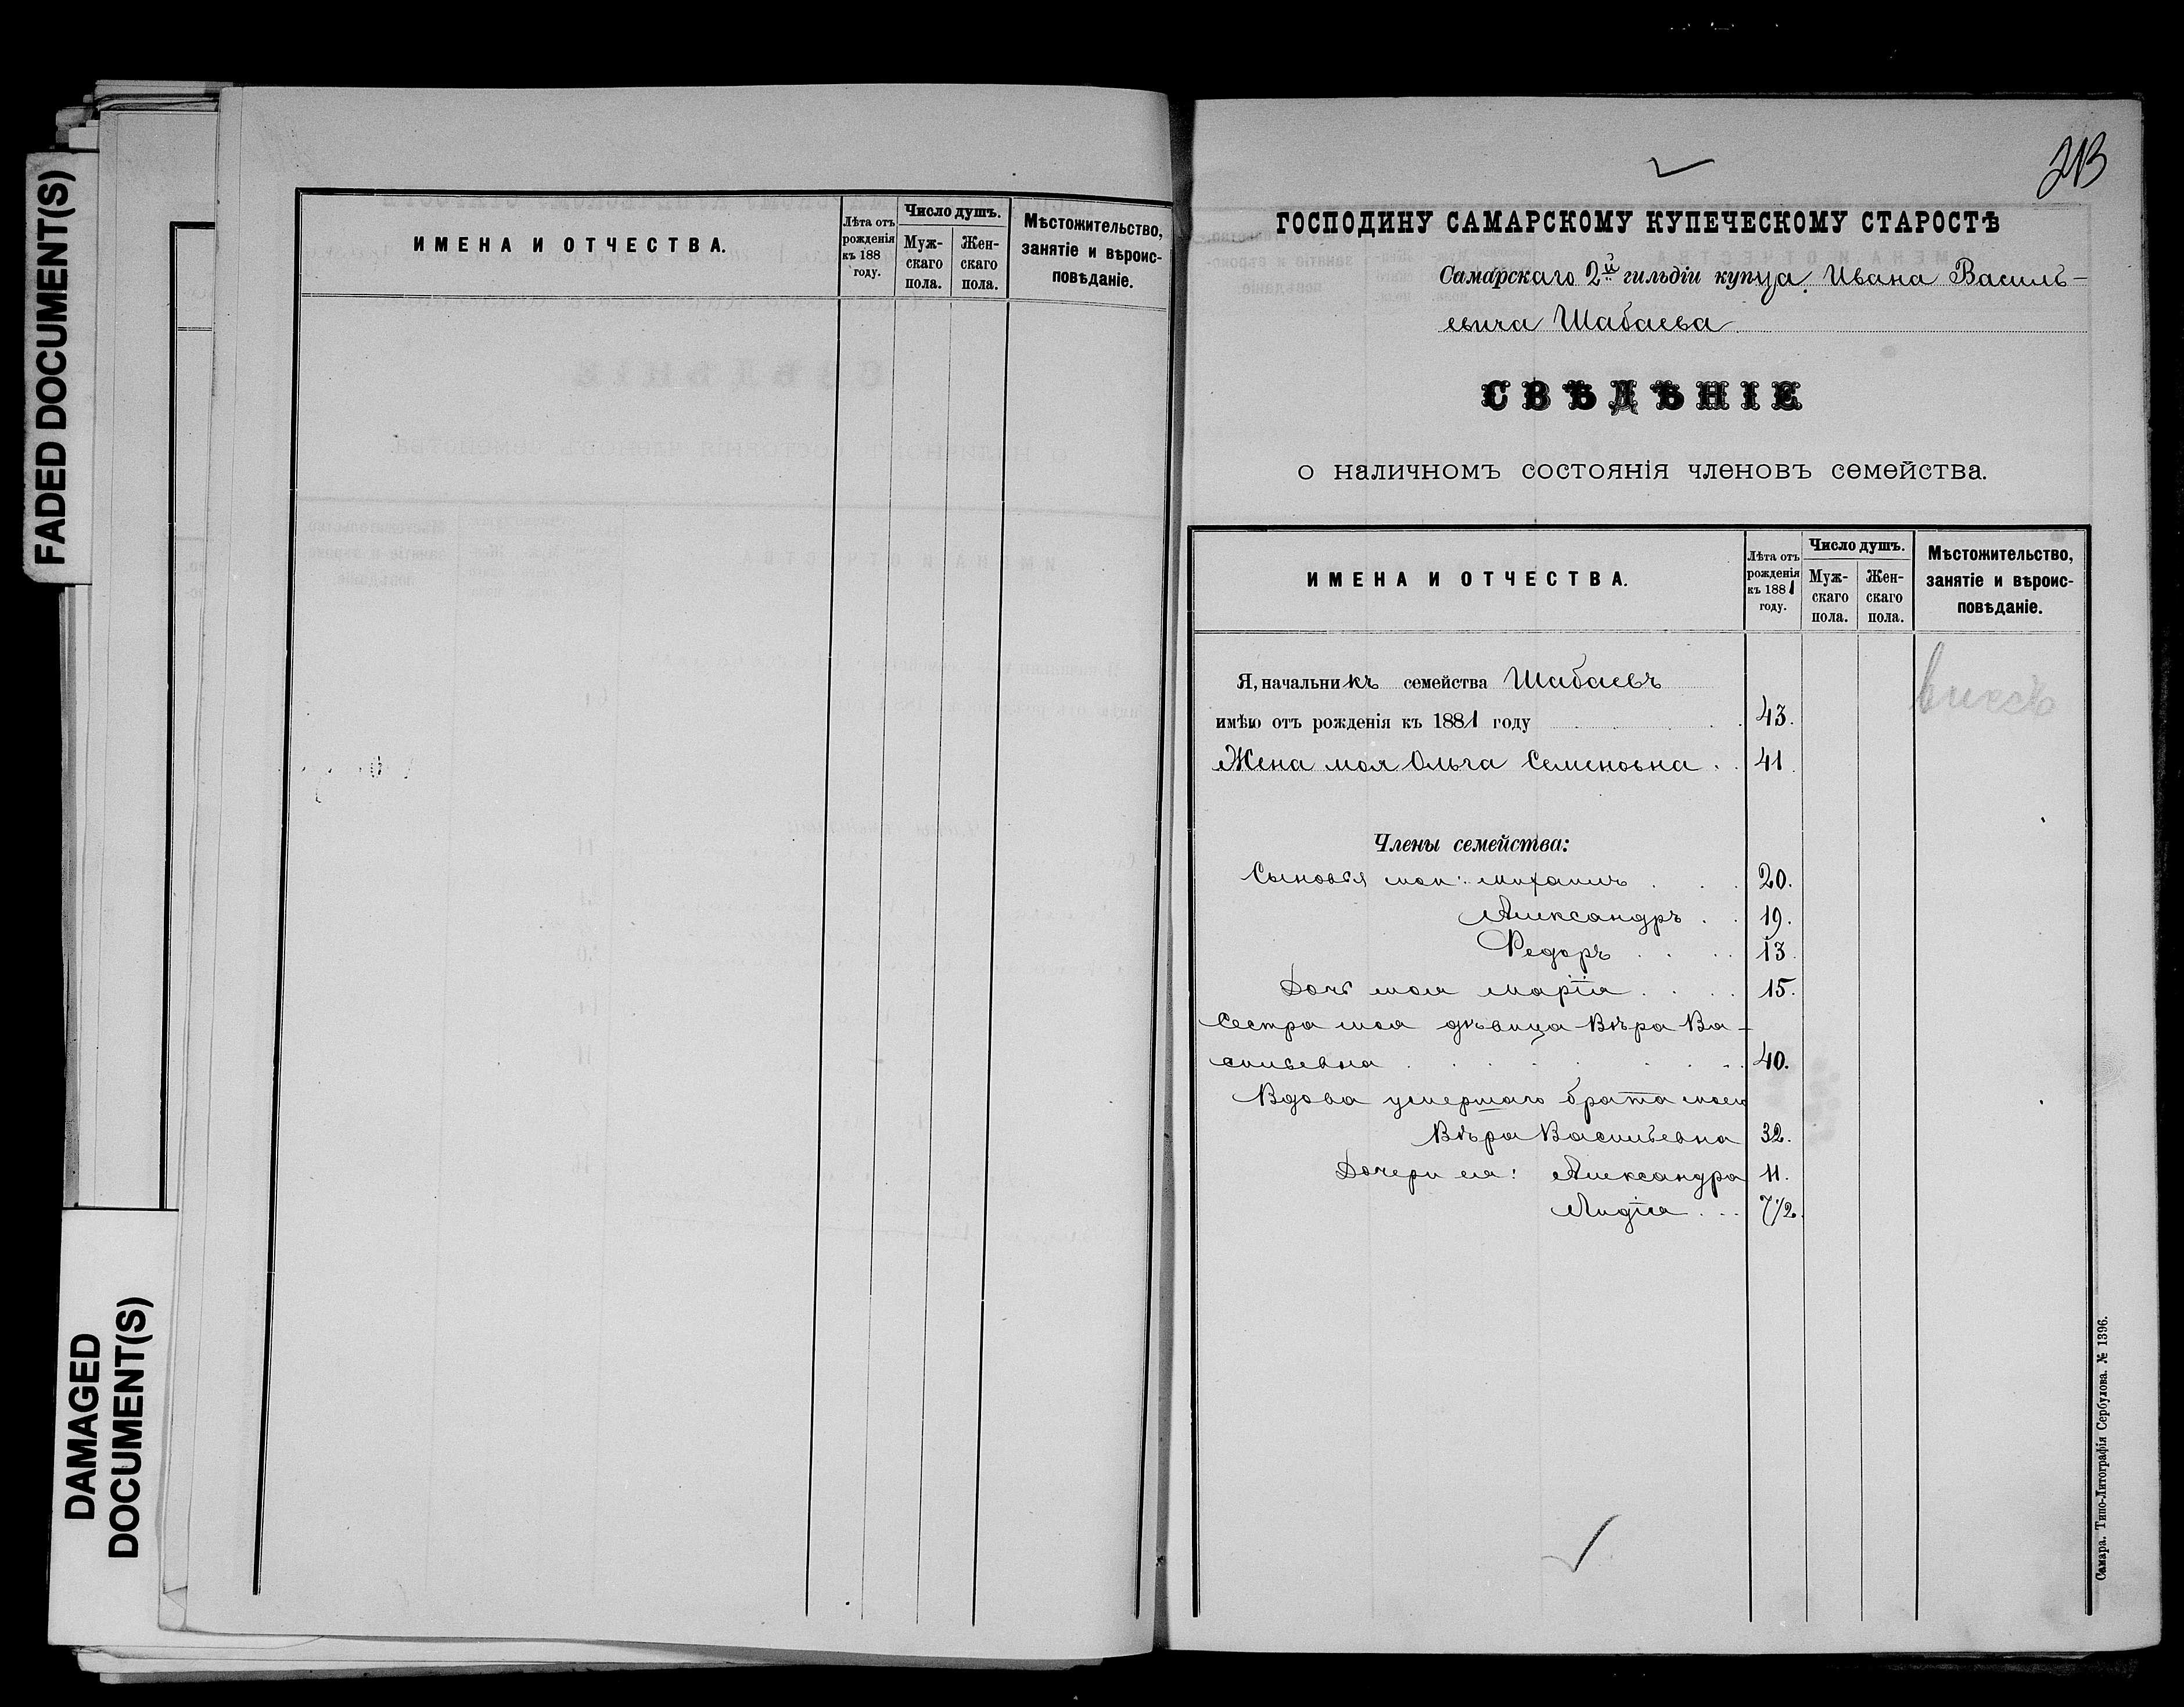 FADED DOCUMENT(S)
DAMAGED
DOCUMENT(S)
ИМЕНА И ОТЧЕСТВА.
Лѣта отъ
рожденія
къ 188
году.
Число душъ.
Муж-
скаго
пола.
Жен-
скаго
пола.
Мѣстожительство,
занятіе и вѣроис-
повѣданіе.
213
ГОСПОДИНУ САМАРСКОМУ КУПЕЧЕСКОМУ СТАРОСТѢ
Самарскаго 2й гильдіи купца Ивана Василь-
евича Шабаева
СВѢДѢНІЕ
о наличномъ состоянія членовъ семейства.
ИМЕНА И ОТЧЕСТВА.
Лѣта отъ
рожденія
къ 1881
году.
Число душъ.
Муж-
скаго
пола.
Жен-
скаго
пола.
Мѣстожительство,
занятіе и вѣроис-
повѣданіе.
Я, начальникъ семейства Шабаевъ
имѣю отъ рожденія къ 1881 году 43.
Жена моя Ольга Семеновна . . 41
Члены семейства:
Сыновья мои: Михаилъ . . . 20.
Александръ . . 19.
Федоръ . . . 13.
Дочь моя Марія . . . . 15.
Сестра моя дѣвица Вѣра Ва-
сильевна . . . . . . . 40.
Вдова умершаго брата моего
Вѣра Васильевна 32.
Дочери ея: Александра 11.
Лидія . . . 7 1/2.
Самара. Типо-Литографія Сербулова. № 1396.